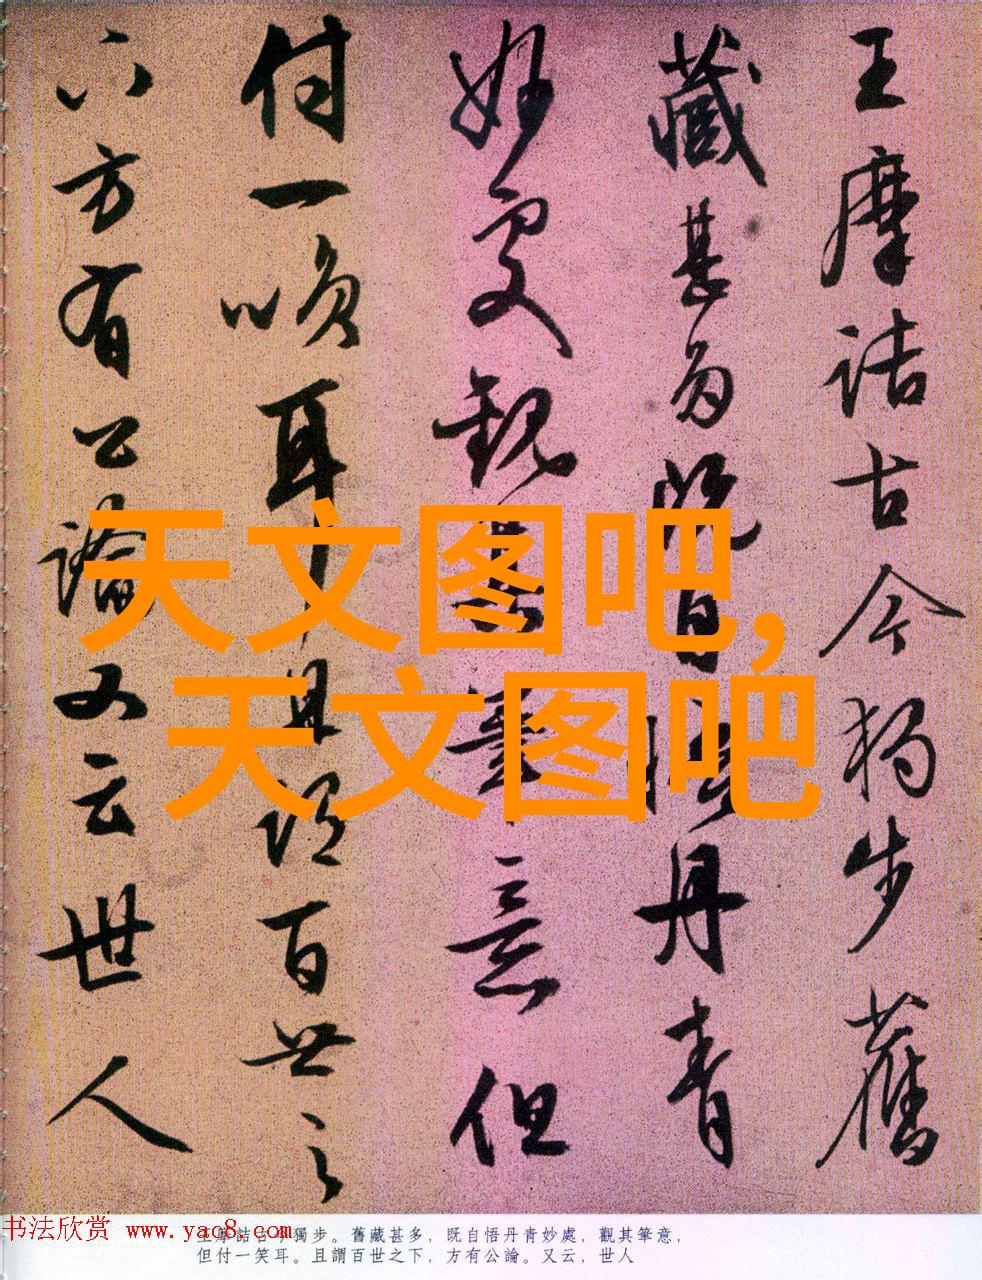 王摩詰古今獨步舊
藏甚多既自悟丹青
妙處觀其筆意但
付一咲耳且謂百世之
下方有公論又云世人
天文图吧,
天文图吧
书法欣赏 www.yac8.com
王摩詰古今獨步。舊藏甚多，既自悟丹青妙處，觀其筆意，
但付一笑耳。且謂百世之下，方有公論。又云，世人